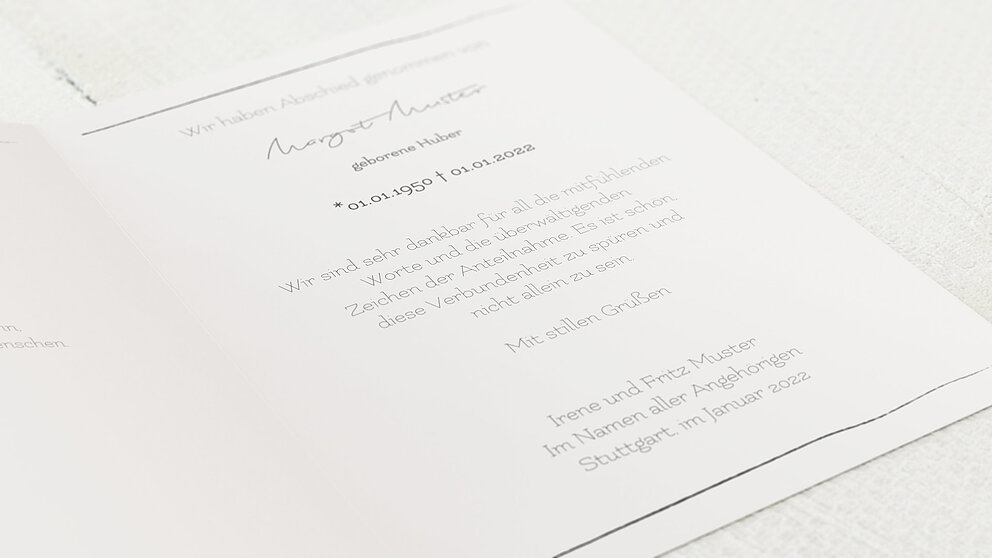 Wir haben Abschied genommen von
Margot Muster
geborene Huber
* 01.01.1950 † 01.01.2022
Wir sind sehr dankbar für all die mitfühlenden
Worte und die überwältigenden
Zeichen der Anteilnahme. Es ist schön,
diese Verbundenheit zu spüren und
nicht allein zu sein.
Mit stillen Grüßen
Irene und Fritz Muster
Im Namen aller Angehörigen
Stuttgart, im Januar 2022